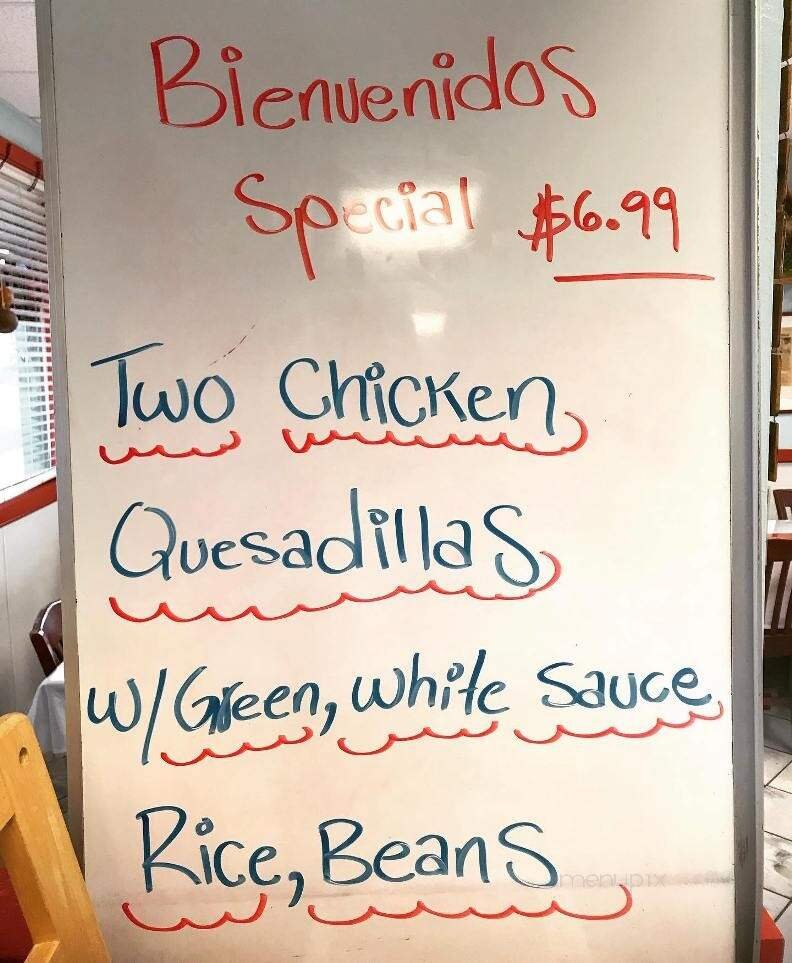 Bienvenidos
Special $6.99
Two Chicken
Quesadillas
W/Green, White Sauce
Rice, Beans
menupix